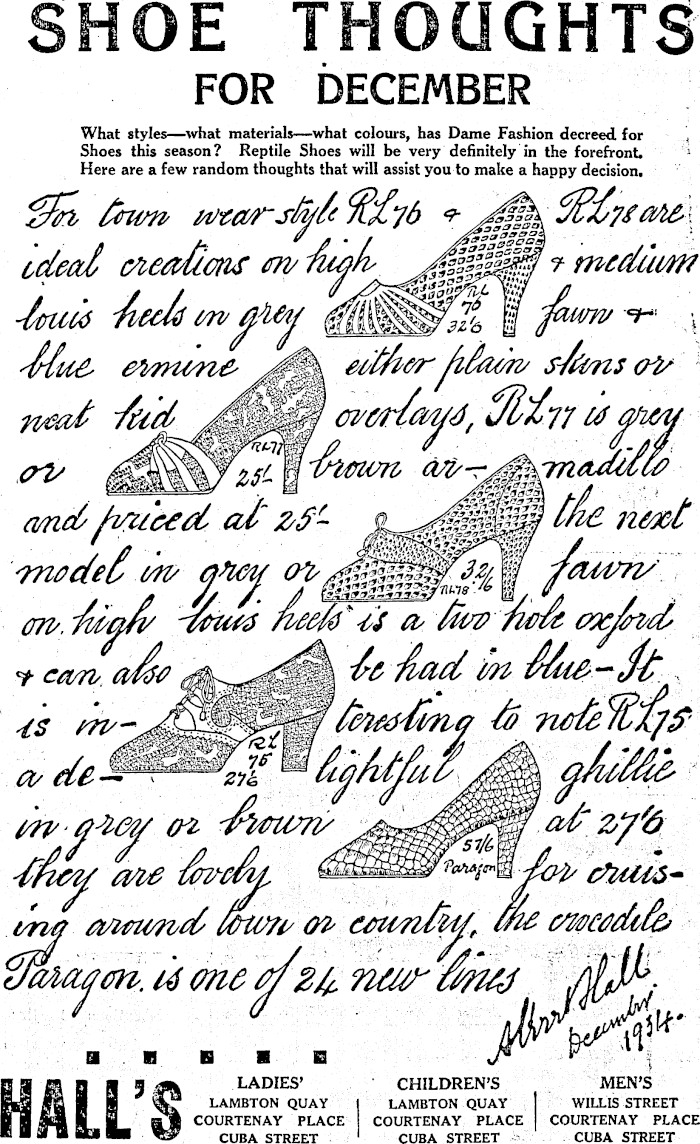 SHOE THOUGHTS
FOR DECEMBER
What styles—what materials—what colours, has Dame Fashion decreed for
Shoes this season? Reptile Shoes will be very definitely in the forefront.
Here are a few random thoughts that will assist you to make a happy decision.
For town wear style RL76 & RL78 are
ideal creations on high & medium
louis heels in grey fawn &
RL
76
32'6
blue ermine either plain skins or
neat kid overlays, RL77 is grey
RL77
25/-
or brown ar- madillo
and priced at 25/- the next
model in grey or fawn
32/6
RL78
on high louis heels is a two hole oxford
& can also be had in blue – It
is in- teresting to note RL75
RL
75
27'6
a de- lightful ghillie
in grey or brown at 27'6
57/6
Paragon
they are lovely for cruis-
ing around town or country, the crocodile
Paragon. is one of 24 new lines
Hall
December
1934.
HALL'S
LADIES'
LAMBTON QUAY
COURTENAY PLACE
CUBA STREET
CHILDREN'S
LAMBTON QUAY
COURTENAY PLACE
CUBA STREET
MEN'S
WILLIS STREET
COURTENAY PLACE
CUBA STREET